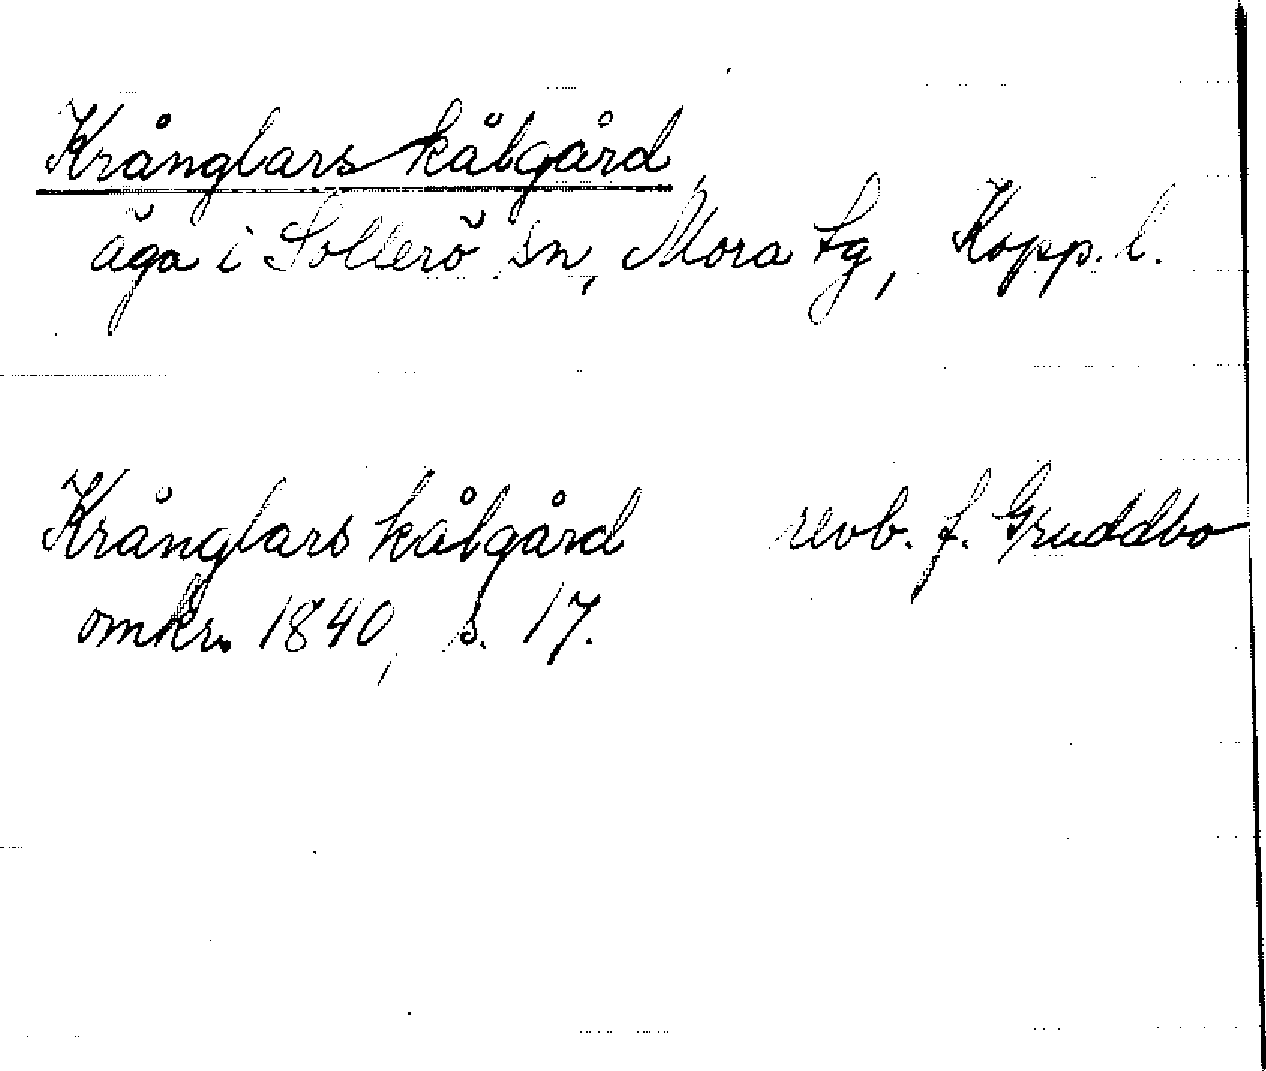 Krånglars kålgård
äga i Sollerö sn, Mora tg, Kopp. l.
Krånglars kålgård revb. f. Gruddbo
omkr. 1840, s. 17.